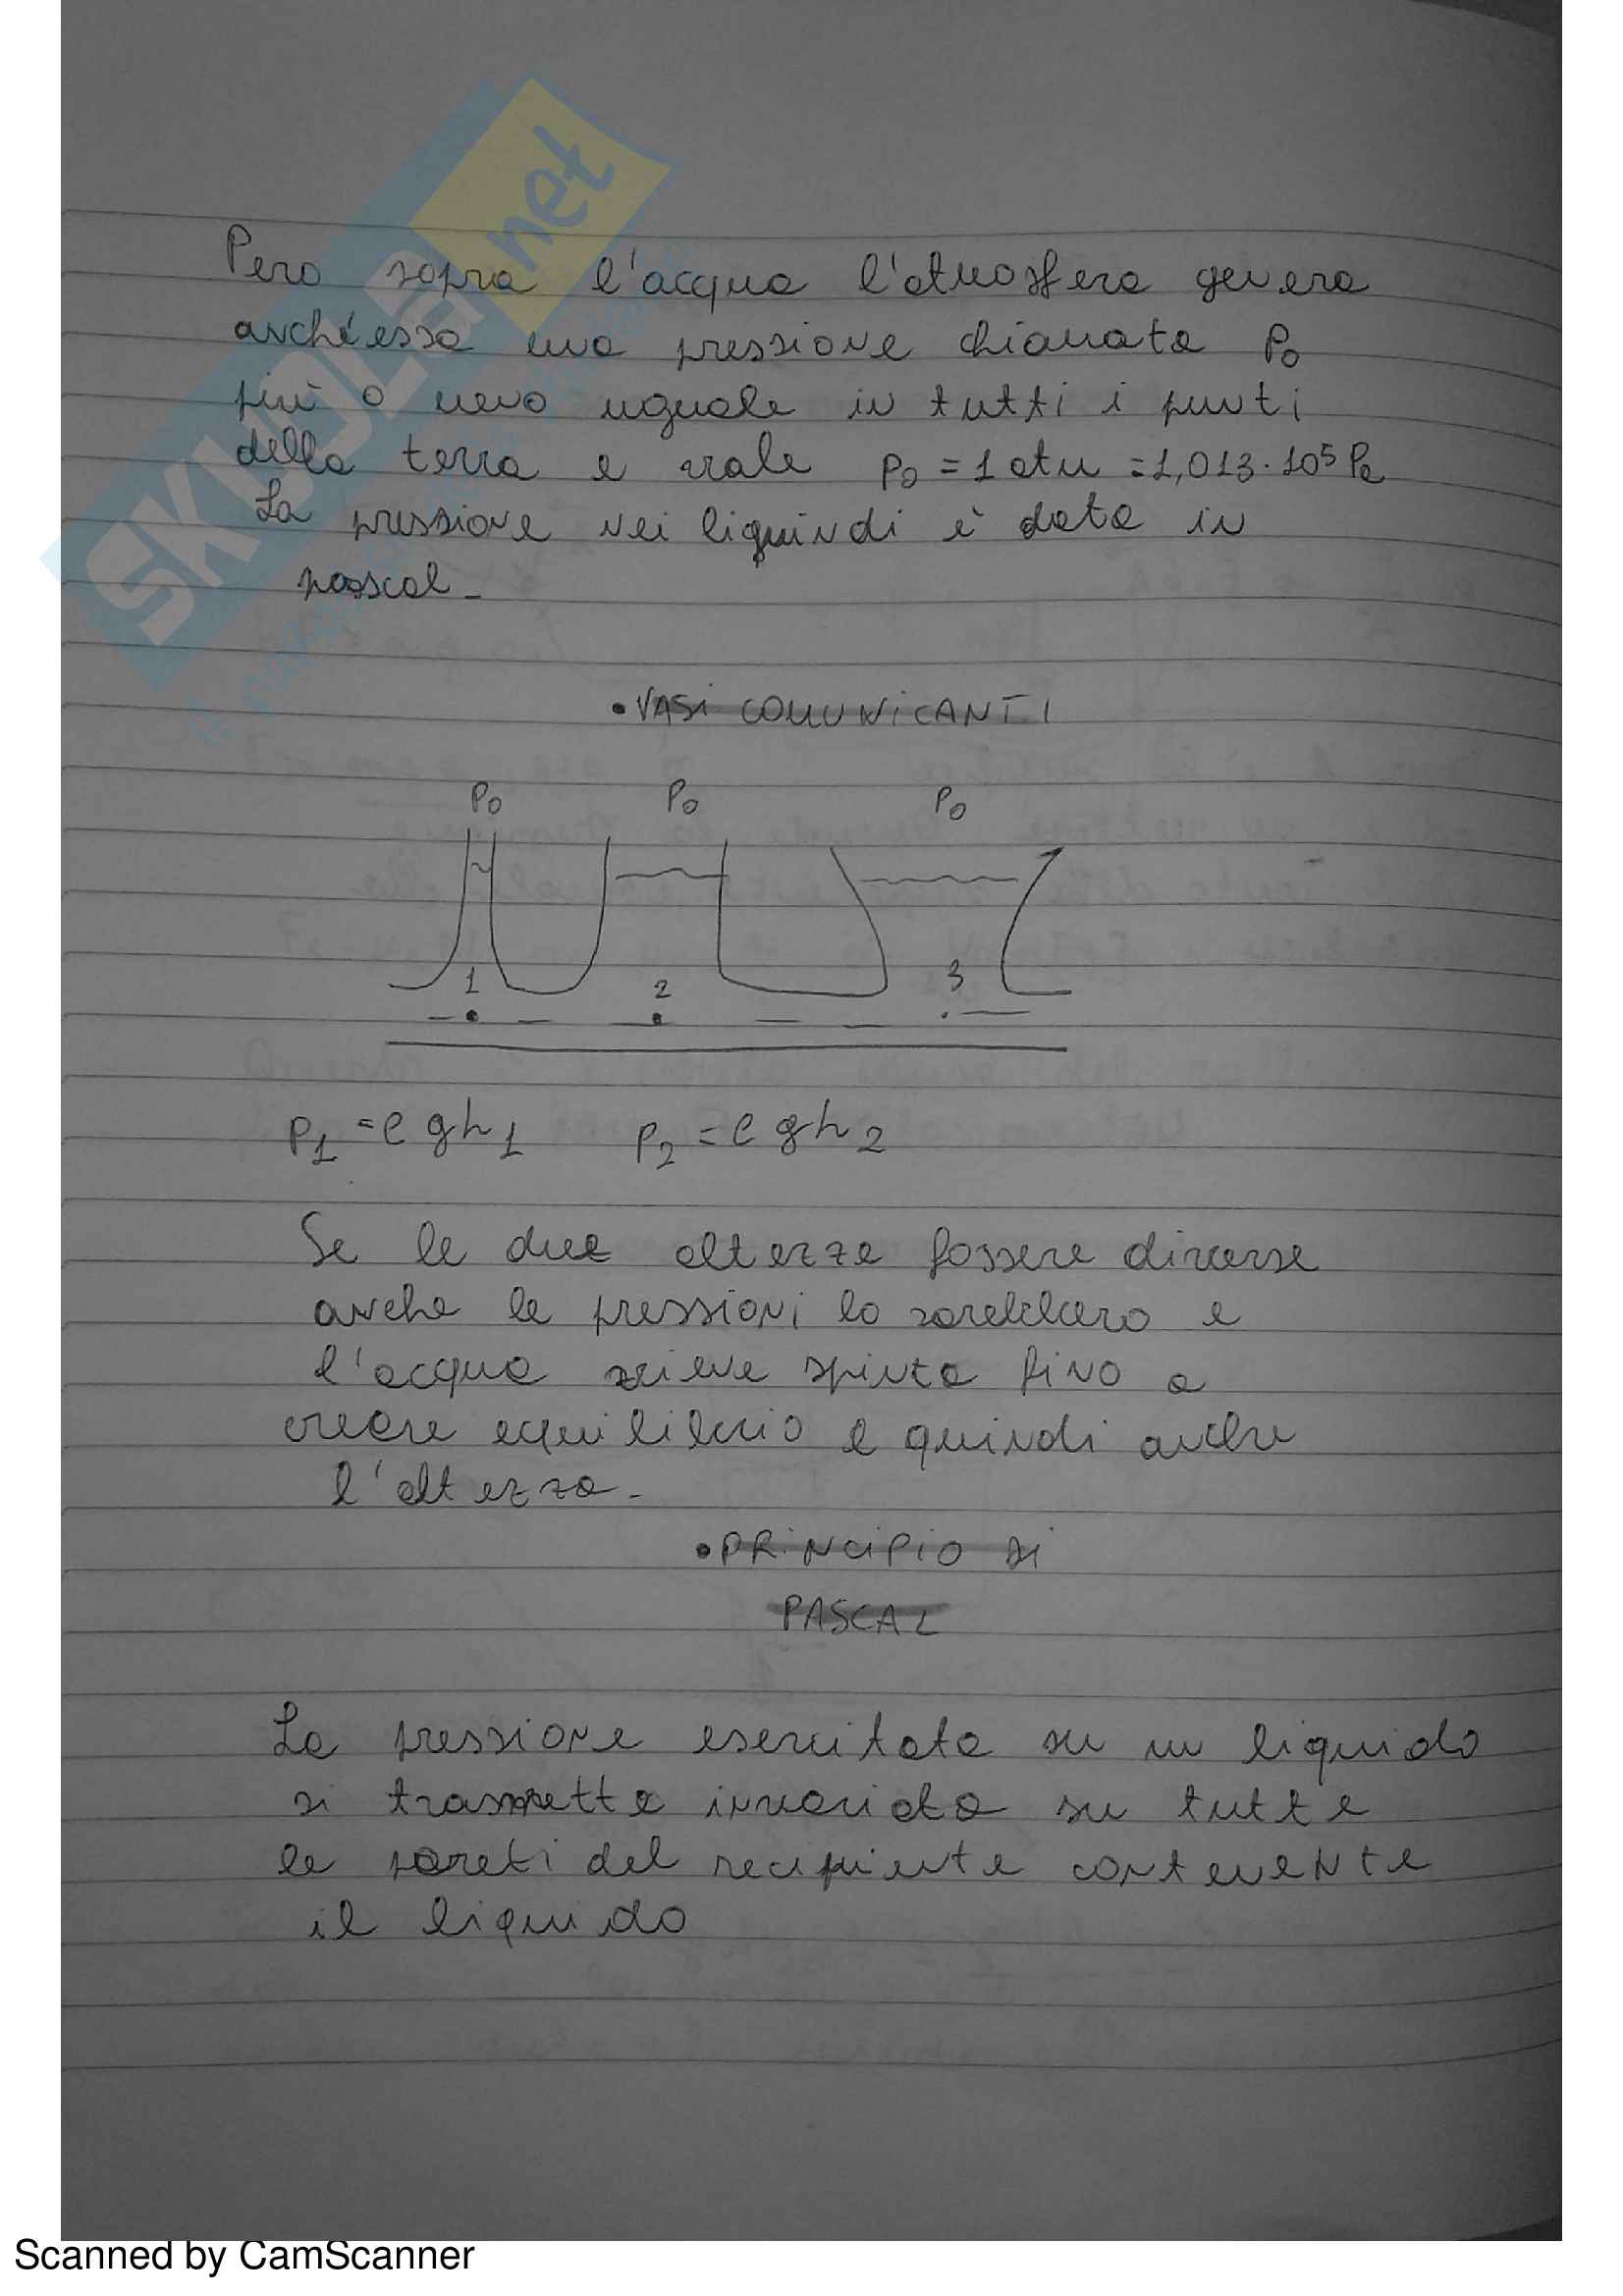 Pero sopra l'acqua l'atmosfera genera
anch'essa una pressione chiamata P0
più o meno uguale in tutti i punti
della terra e vale p0 = 1 atm = 1,013 · 10⁵ Pa
La pressione nei liquindi è data in
pascal -
• VASI COMUNICANTI
P0 P0 P0
1 2 3
P1 = ρgh1 P2 = ρgh2
Se le due altezze fossere diverse
anche le pressioni lo sarebbero e
l'acqua viene spinta fino a
creare equilibrio e quindi anche
l'altezza -
• PRINCIPIO DI
PASCAL
La pressione esercitata su un liquido
si trasmette invariata su tutte
le pareti del recipiente contenente
il liquido
SKUOLA.net
Scanned by CamScanner